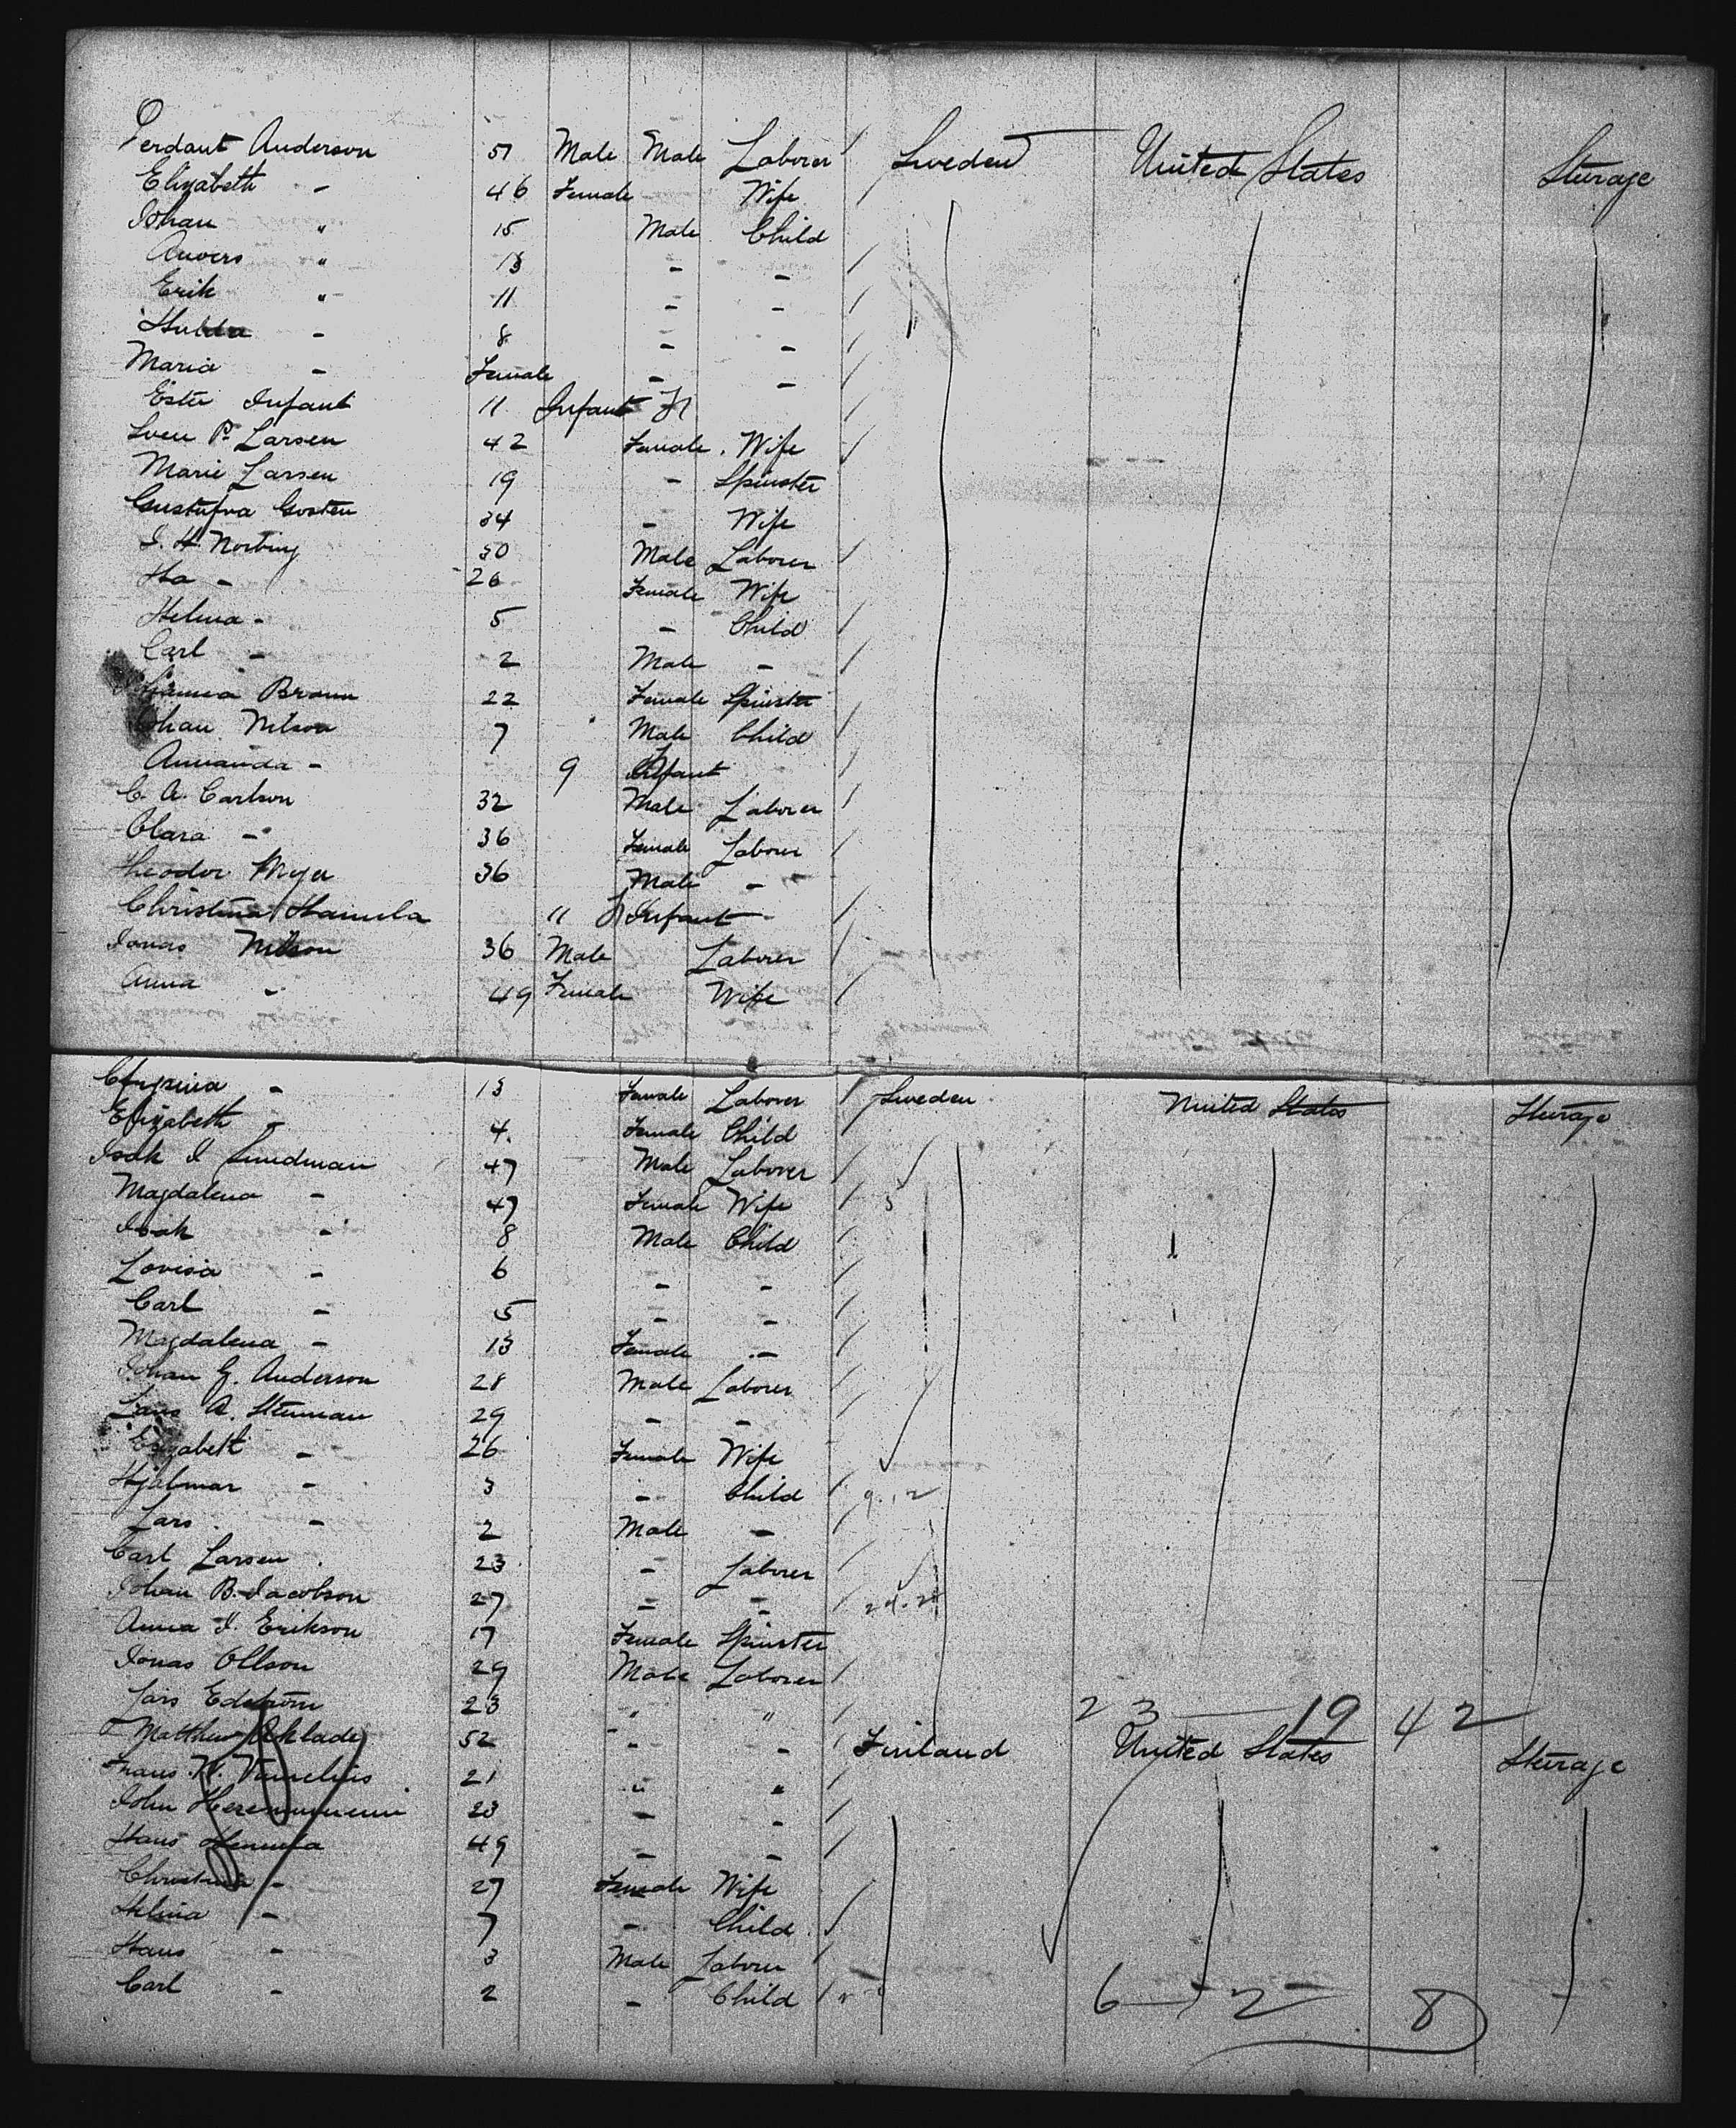 Perdant Anderson 51 Male Male Laborer / Sweden United States Sturage
Elizabeth - 46 Female Wife /
Johan " 15 Male Child
Anvers " 13 - - /
Erik " 11 - - /
Hulda - 8 - - /
Maria - Female - - /
Ester Infant 11 Infant /
Sven P. Larsen 42 Female. Wife /
Marie Larsen 19 - Spinster
Gustafva Gosten 34 - Wife
I. H. Norbing 30 Male Laborer /
Ha - 26 Female Wife
Helma - 5 - Child /
Carl - 2 Male - /
Johanna Braun 22 Female Spinster
Johan Nilson 7 Male Child /
Amanda - 9 Infant /
C. A. Carlson 32 Male Laborer /
Clara - 36 Female Laborer /
Theodor Myer 36 Male -
Christina Hamula 11 Infant /
Jonas Nilson 36 Male Laborer /
Anna - 49 Female Wife /
- 13 Female Laborer / Sweden United States Sturage
Elizabeth - 4. Female Child /
Isak I Lundman 47 Male Laborer /
Magdalena - 47 Female Wife /
Isak - 8 Male Child /
Lovisa - 6 - - /
Carl - 5 - - /
Magdalena - 13 Female - /
Johan G. Anderson 28 Male Laborer /
Lars A. Stenman 29 - - /
Elizabeth - 26 Female Wife
Hjalmar - 3 - Child /
Lars - 2 Male - /
Carl Larsen 23 - Laborer /
Johan B. Jacobson 27 - - /
Anna I. Erikson 17 Female Spinster
Jonas Ollson 29 Male Laborer /
Lars Edstrom 23 " " / 23 - 19 42
Matthew Aklade 52 - - / Finland United States Sturage
Frans W. 21 " " /
John 23 - - /
Hans Hamula 49 - - /
Christina - 27 Female Wife
Helma - 7 - Child /
Hans - 3 Male Laborer /
Carl - 2 - Child / 6 - 2 - 8